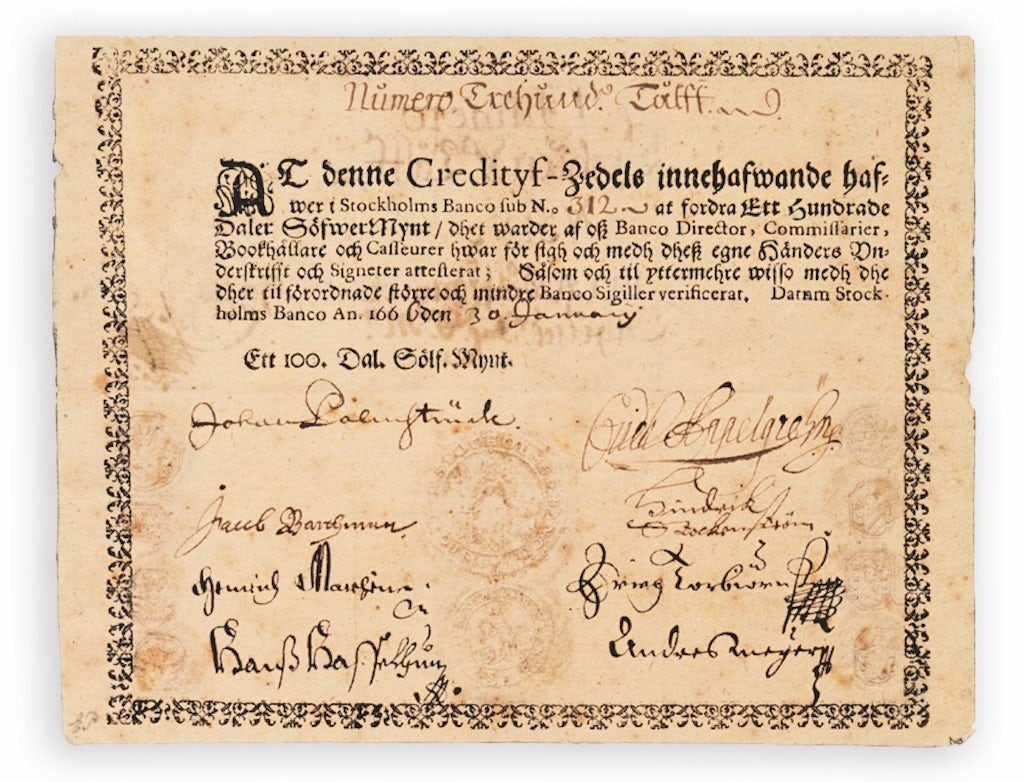 Numero Trehund. Tålff.
AT denne Credityf-Zedels innehafwande haf-
wer i Stockholms Banco sub N.o 312 at fordra Ett Hundrade
Daler SöfwerMynt / dhet warder af oß Banco Director, Commissarier,
Bookhållare och Casseurer hwar för sigh och medh dheß egne Händers Vn-
derskrifft och Signeter attesterat; Såsom och til yttermehre wisso medh dhe
dher til förordnade större och mindre Banco Sigiller verificerat. Datum Stock-
holms Banco An. 1666 den 30. January
Ett 100. Dal. Sölf. Mynt.
Johan Palmstruck.
Hindrik
Jacob
Heinrich
Hanß
Andres meyer